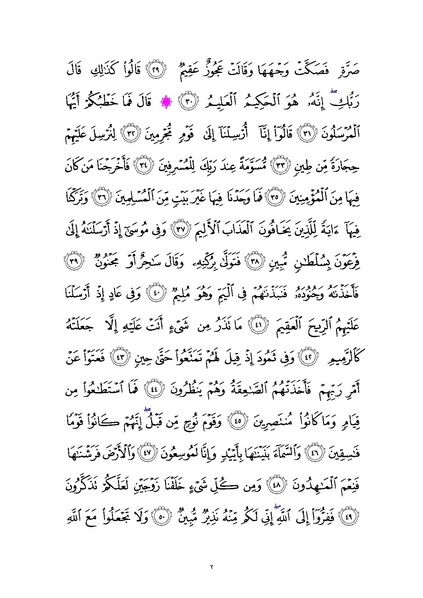 صَرَّةٍ فَصَكَّتْ وَجْهَهَا وَقَالَتْ عَجُوزٌ عَقِيمٌ ﴿٢٩﴾ قَالُوا۟ كَذَٰلِكِ قَالَ
رَبُّكِ ۖ إِنَّهُۥ هُوَ ٱلْحَكِيمُ ٱلْعَلِيمُ ﴿٣٠﴾ ۞ قَالَ فَمَا خَطْبُكُمْ أَيُّهَا
ٱلْمُرْسَلُونَ ﴿٣١﴾ قَالُوٓا۟ إِنَّآ أُرْسِلْنَآ إِلَىٰ قَوْمٍ مُّجْرِمِينَ ﴿٣٢﴾ لِنُرْسِلَ عَلَيْهِمْ
حِجَارَةً مِّن طِينٍ ﴿٣٣﴾ مُّسَوَّمَةً عِندَ رَبِّكَ لِلْمُسْرِفِينَ ﴿٣٤﴾ فَأَخْرَجْنَا مَن كَانَ
فِيهَا مِنَ ٱلْمُؤْمِنِينَ ﴿٣٥﴾ فَمَا وَجَدْنَا فِيهَا غَيْرَ بَيْتٍ مِّنَ ٱلْمُسْلِمِينَ ﴿٣٦﴾ وَتَرَكْنَا
فِيهَآ ءَايَةً لِّلَّذِينَ يَخَافُونَ ٱلْعَذَابَ ٱلْأَلِيمَ ﴿٣٧﴾ وَفِى مُوسَىٰٓ إِذْ أَرْسَلْنَٰهُ إِلَىٰ
فِرْعَوْنَ بِسُلْطَٰنٍ مُّبِينٍ ﴿٣٨﴾ فَتَوَلَّىٰ بِرُكْنِهِۦ وَقَالَ سَٰحِرٌ أَوْ مَجْنُونٌ ﴿٣٩﴾
فَأَخَذْنَٰهُ وَجُنُودَهُۥ فَنَبَذْنَٰهُمْ فِى ٱلْيَمِّ وَهُوَ مُلِيمٌ ﴿٤٠﴾ وَفِى عَادٍ إِذْ أَرْسَلْنَا
عَلَيْهِمُ ٱلرِّيحَ ٱلْعَقِيمَ ﴿٤١﴾ مَا تَذَرُ مِن شَىْءٍ أَتَتْ عَلَيْهِ إِلَّا جَعَلَتْهُ
كَٱلرَّمِيمِ ﴿٤٢﴾ وَفِى ثَمُودَ إِذْ قِيلَ لَهُمْ تَمَتَّعُوا۟ حَتَّىٰ حِينٍ ﴿٤٣﴾ فَعَتَوْا۟ عَنْ
أَمْرِ رَبِّهِمْ فَأَخَذَتْهُمُ ٱلصَّٰعِقَةُ وَهُمْ يَنظُرُونَ ﴿٤٤﴾ فَمَا ٱسْتَطَٰعُوا۟ مِن
قِيَامٍ وَمَا كَانُوا۟ مُنتَصِرِينَ ﴿٤٥﴾ وَقَوْمَ نُوحٍ مِّن قَبْلُ ۖ إِنَّهُمْ كَانُوا۟ قَوْمًا
فَٰسِقِينَ ﴿٤٦﴾ وَٱلسَّمَآءَ بَنَيْنَٰهَا بِأَيْي۟دٍ وَإِنَّا لَمُوسِعُونَ ﴿٤٧﴾ وَٱلْأَرْضَ فَرَشْنَٰهَا
فَنِعْمَ ٱلْمَٰهِدُونَ ﴿٤٨﴾ وَمِن كُلِّ شَىْءٍ خَلَقْنَا زَوْجَيْنِ لَعَلَّكُمْ تَذَكَّرُونَ
﴿٤٩﴾ فَفِرُّوٓا۟ إِلَى ٱللَّهِ ۖ إِنِّى لَكُم مِّنْهُ نَذِيرٌ مُّبِينٌ ﴿٥٠﴾ وَلَا تَجْعَلُوا۟ مَعَ ٱللَّهِ
٢